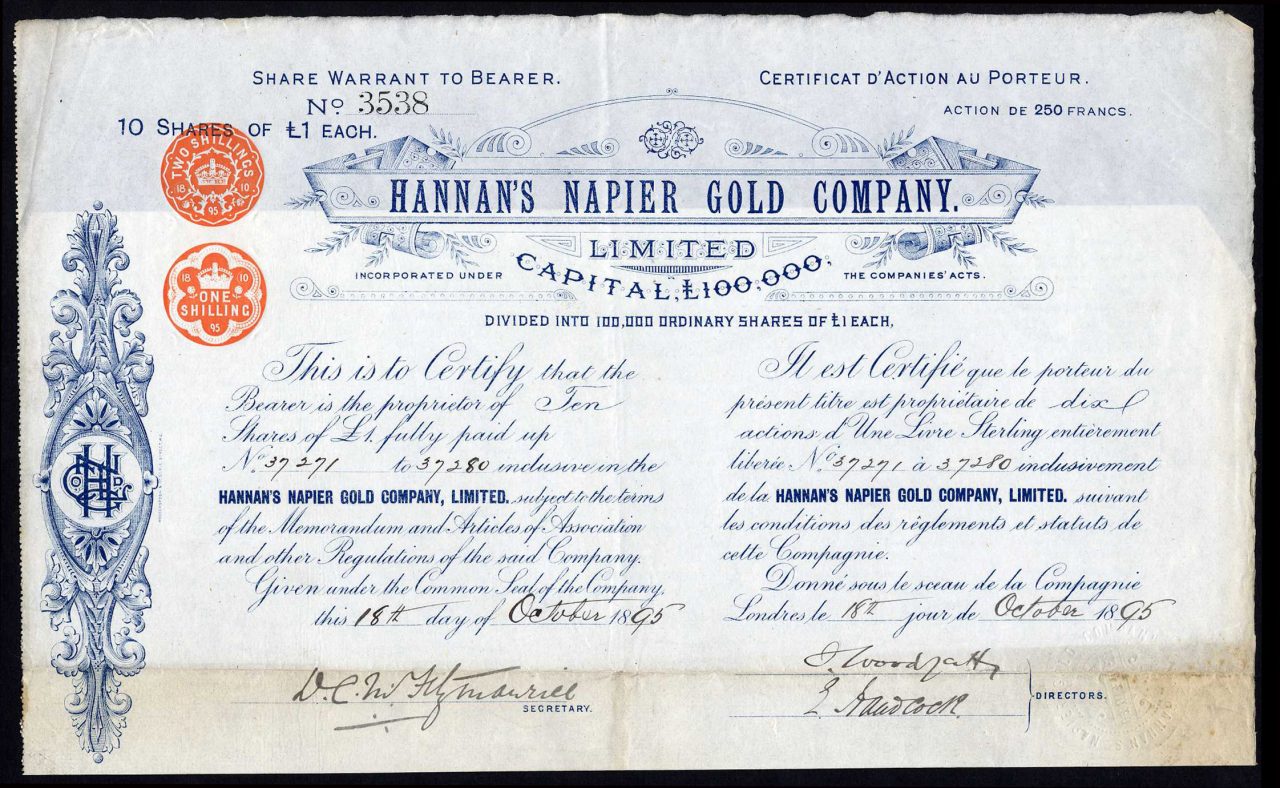 SHARE WARRANT TO BEARER.
No 3538
10 SHARES OF £1 EACH.
CERTIFICAT D'ACTION AU PORTEUR.
ACTION DE 250 FRANCS.
TWO SHILLINGS
18 10
95
18 10
ONE
SHILLING
95
HANNAN'S NAPIER GOLD COMPANY.
LIMITED
INCORPORATED UNDER CAPITAL, £100,000, THE COMPANIES' ACTS.
DIVIDED INTO 100,000 ORDINARY SHARES OF £1 EACH,
This is to Certify that the
Bearer is the proprietor of Ten
Shares of £1. fully paid up
No 37271 to 37280 inclusive in the
HANNAN'S NAPIER GOLD COMPANY, LIMITED. subject to the terms
of the Memorandum and Articles of Association
and other Regulations of the said Company.
Given under the Common Seal of the Company,
this 18th day of October 1895
Il est Certifié que le porteur du
présent titre est propriétaire de dix
actions d'Une Livre Sterling entièrement
libérée No 37271 à 37280 inclusivement
de la HANNAN'S NAPIER GOLD COMPANY, LIMITED. suivant
les conditions des règlements et statuts de
cette Compagnie.
Donné sous le sceau de la Compagnie
Londres, le 18th jour de October 1895
SECRETARY.
E Handcock.
DIRECTORS.